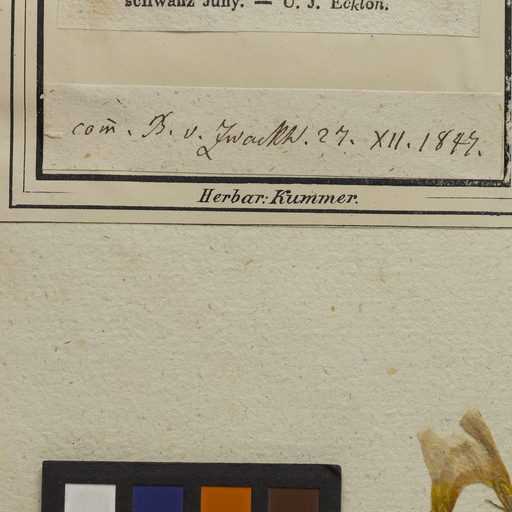 schwanz Juny. — U. J. Ecklon.
com̄. B. v. Zwackh. 27. XII. 1847.
Herbar: Kummer.